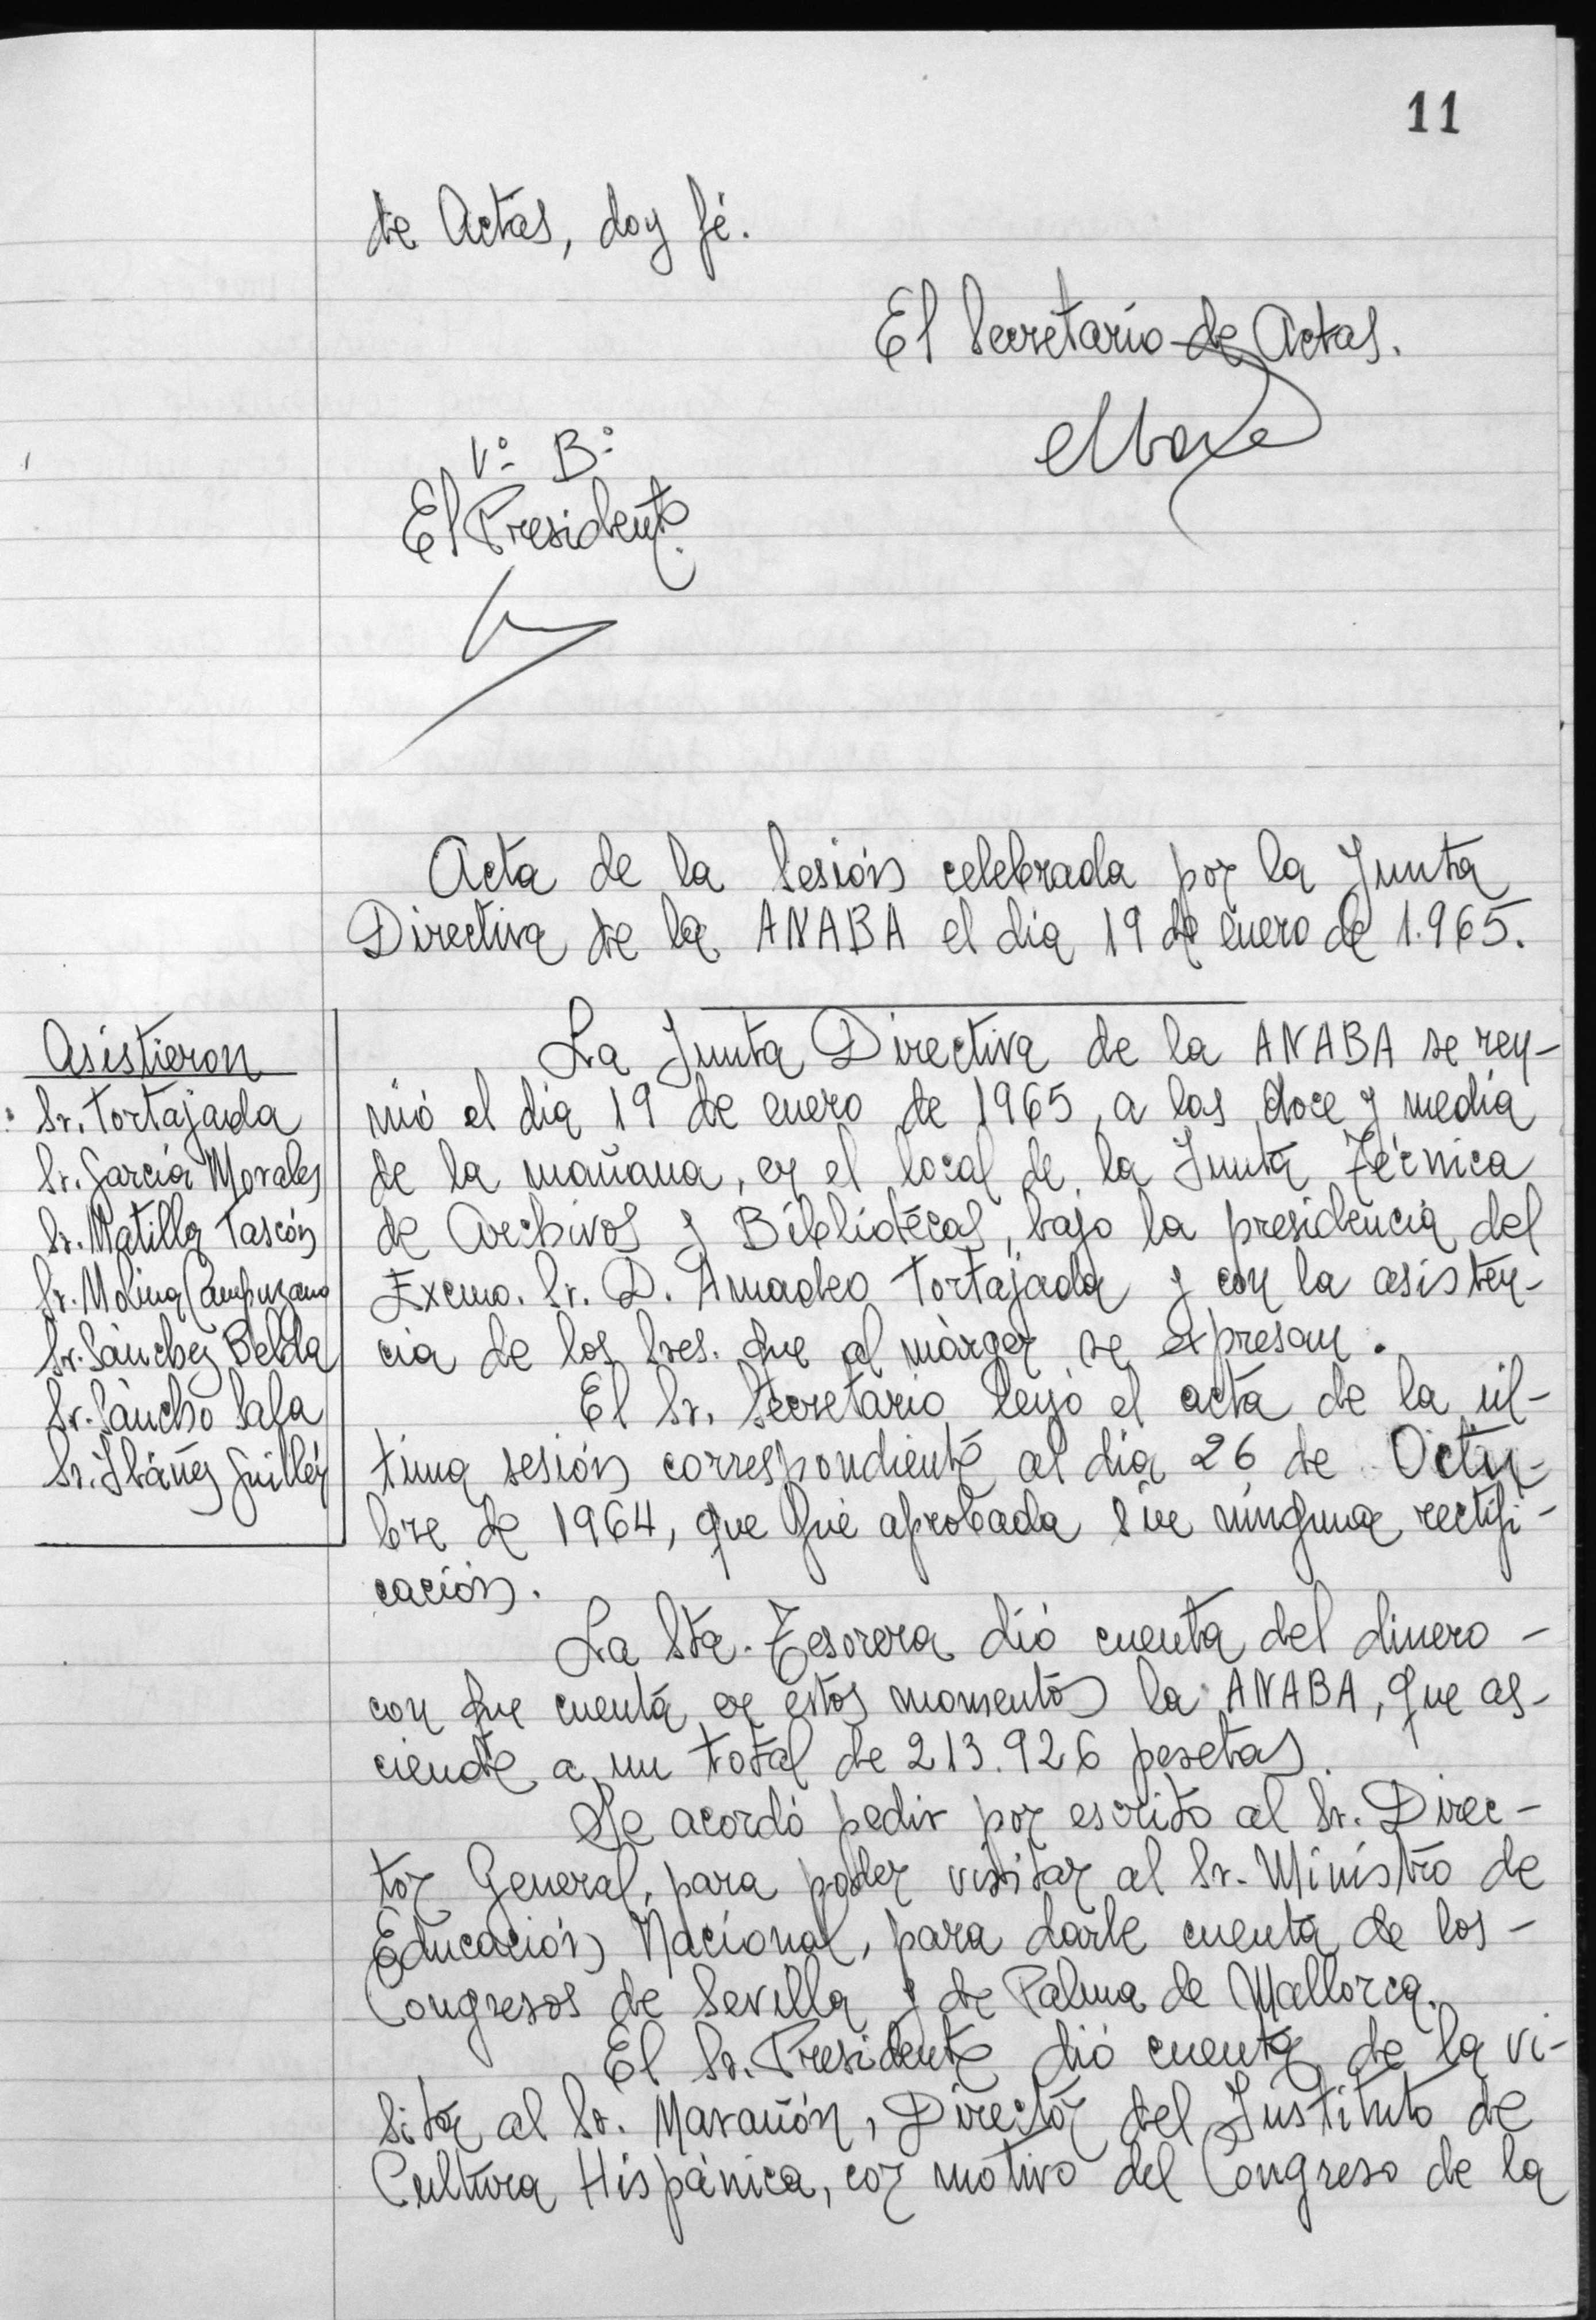 11
de Actas, doy fé.
El Secretario de Actas.
Vº Bº
El Presidente.
Acta de la Sesión celebrada por la Junta
Directiva de la ANABA el día 19 de enero de 1.965.
Asistieron
Sr. Tortajada
Sr. García Morales
Sr. Matilla Tascón
Sr. Molina Campuzano
Sr. Sánchez Belda
Sr. Sancho Sala
Sr. Ibáñez Guillén
La Junta Directiva de la ANABA se reu-
nió el día 19 de enero de 1965, a las doce y media
de la mañana, en el local de la Junta Técnica
de Archivos y Bibliotecas, bajo la presidencia del
Excmo. Sr. D. Amadeo Tortajada y con la asisten-
cia de los Sres. que al márgen se expresan.
El Sr. Secretario leyó el acta de la úl-
tima sesión correspondiente al día 26 de Octu-
bre de 1964, que fué aprobada sin ninguna rectifi-
cación.
La Sta. Tesorera dió cuenta del dinero -
con que cuenta en estos momentos la ANABA, que as-
ciende a un total de 213.926 pesetas.
Se acordó pedir por escrito al Sr. Direc-
tor General, para poder visitar al Sr. Ministro de
Educación Nacional, para darle cuenta de los -
Congresos de Sevilla y de Palma de Mallorca.
El Sr. Presidente dió cuenta de la vi-
sita al Sr. Marañón, Director del Instituto de
Cultura Hispánica, con motivo del Congreso de la